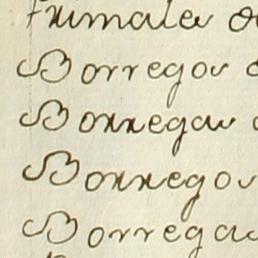 Primalas
Borregos
Borregas
Borregos
Borregas